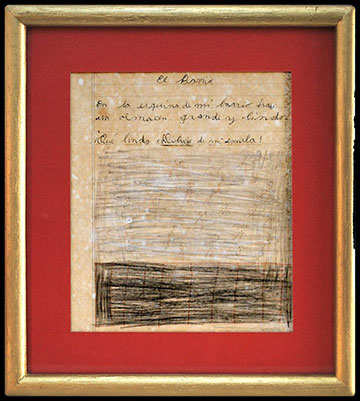 El Barrio
En la esquina de mi barrio hay
un almacen grande y lindo
¡Que lindo dibujo de mi escuela!